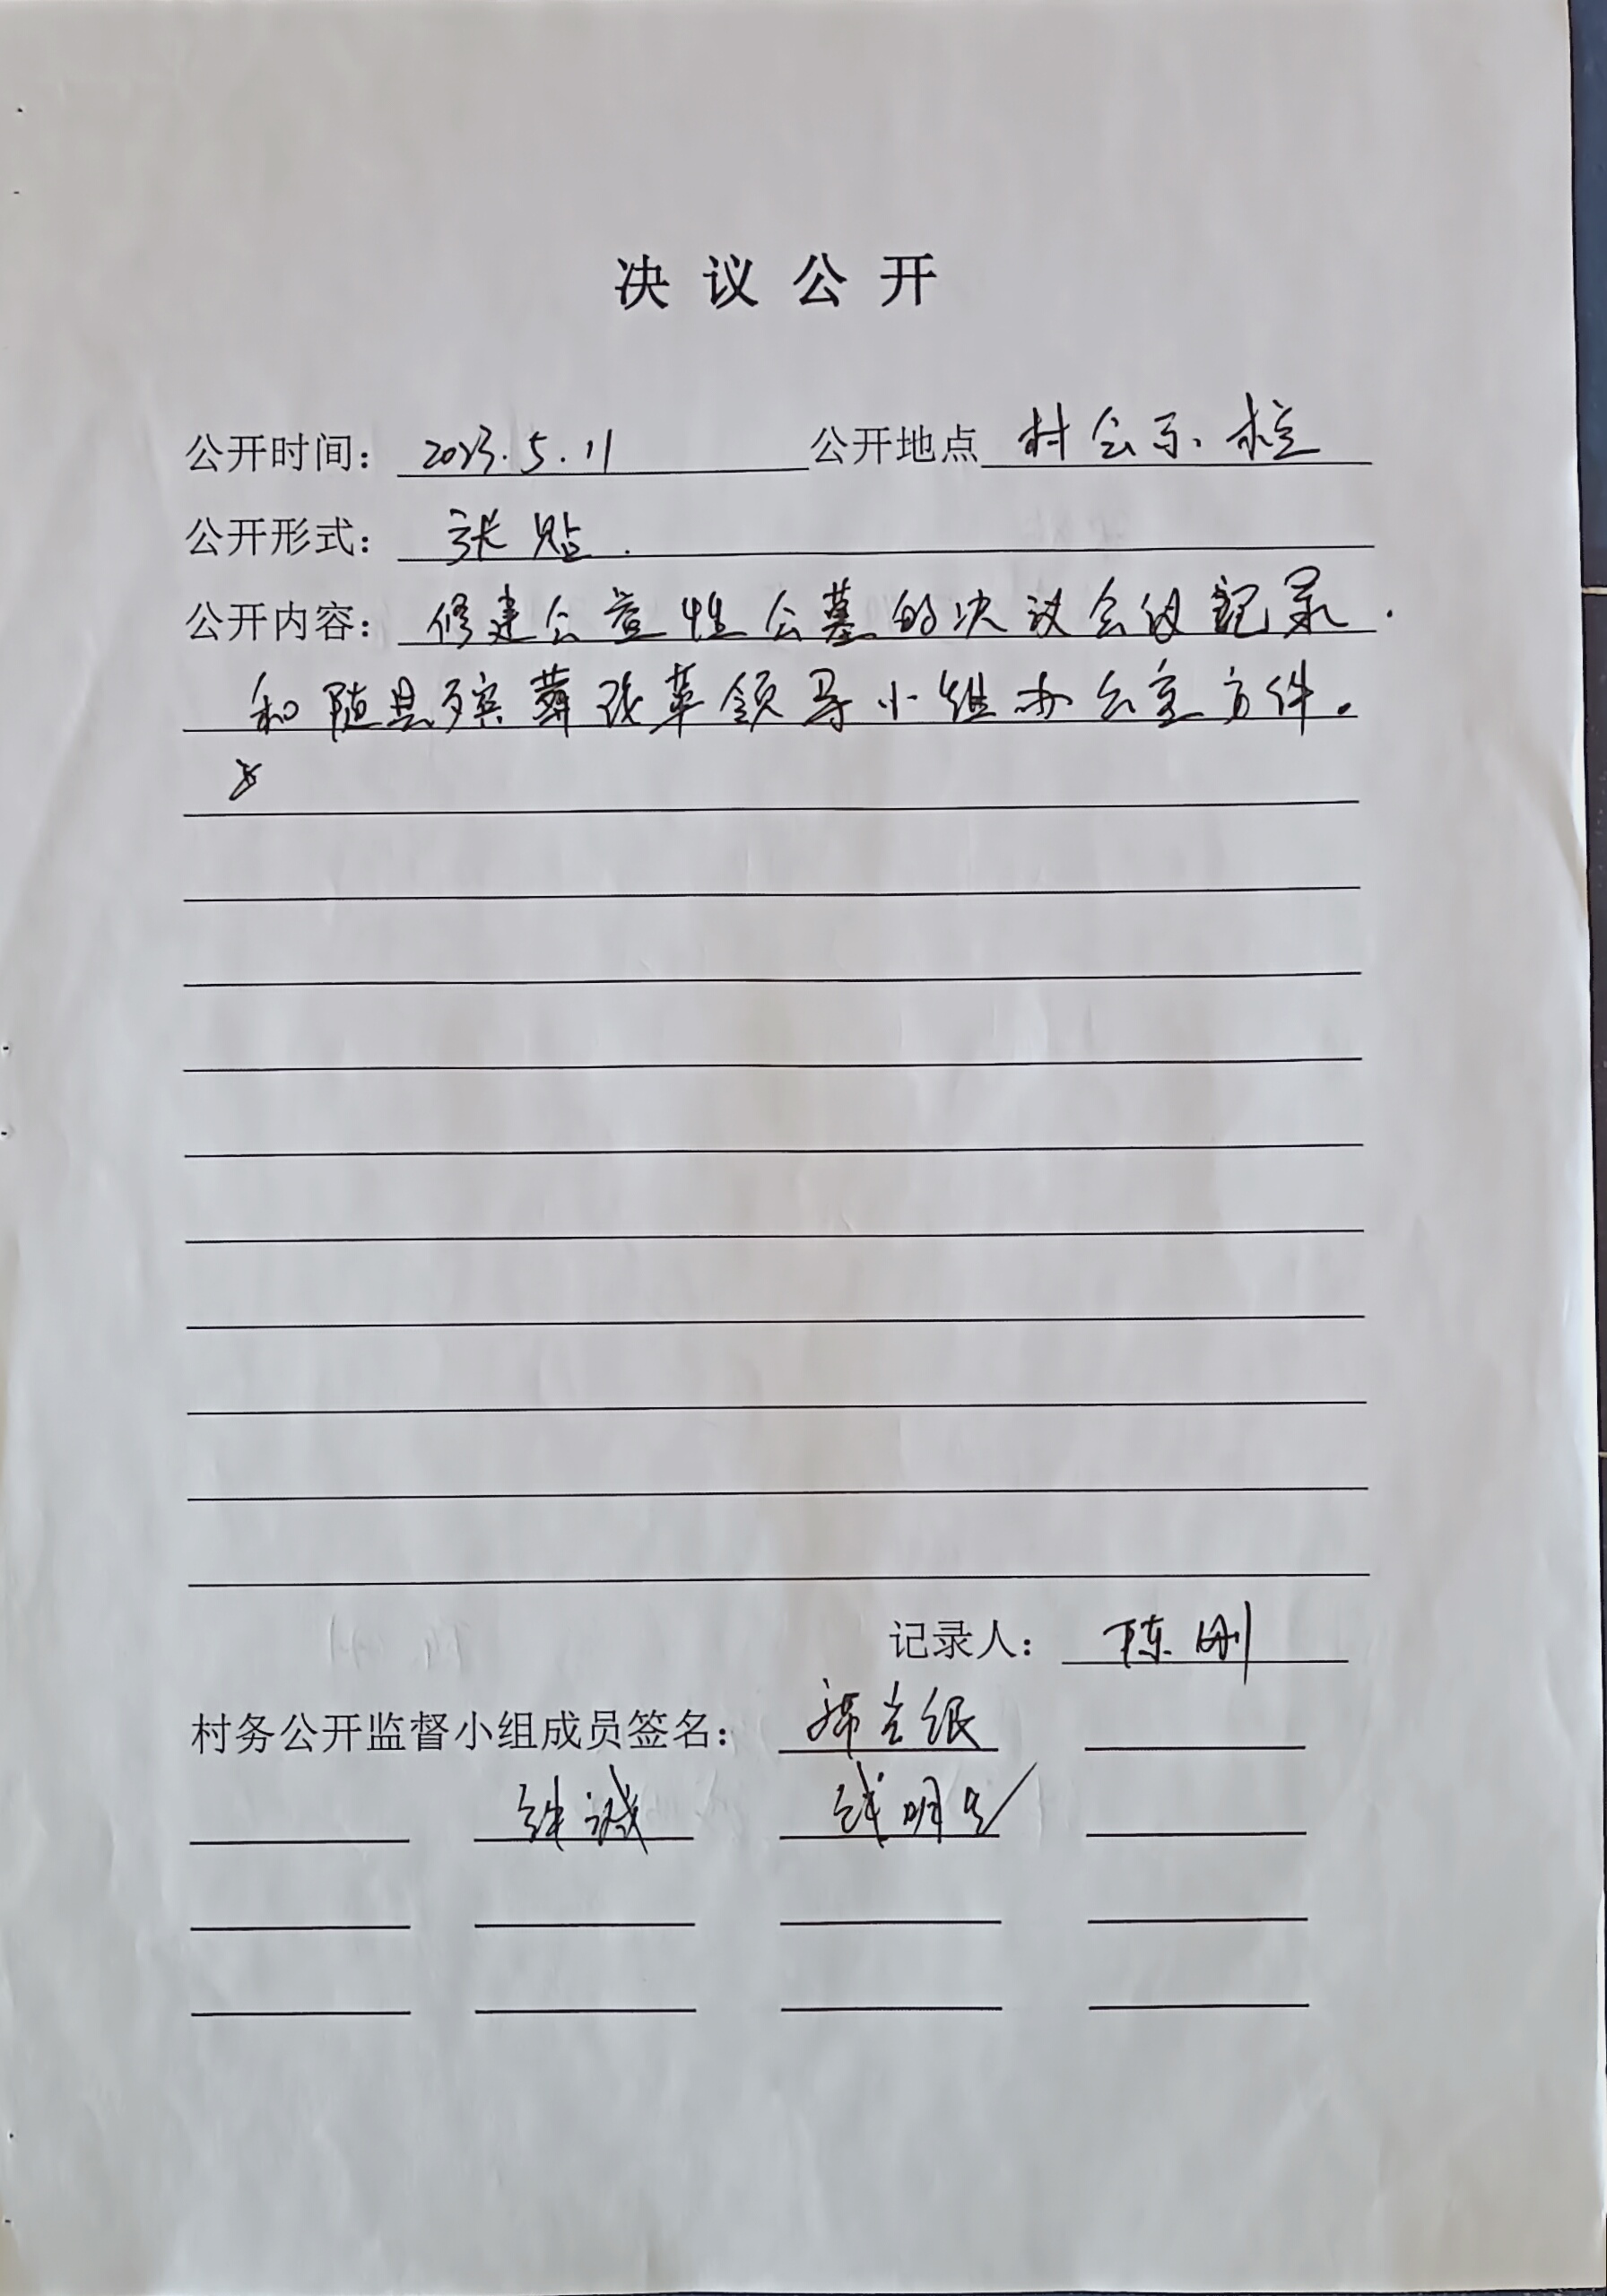 决议公开
公开时间：2023.5.11 公开地点 村公示栏
公开形式：张贴.
公开内容：修建公益性公墓的决议会议记录.
和随县殡葬改革领导小组办公室文件。
记录人：陈刚
村务公开监督小组成员签名：
诚 钱明